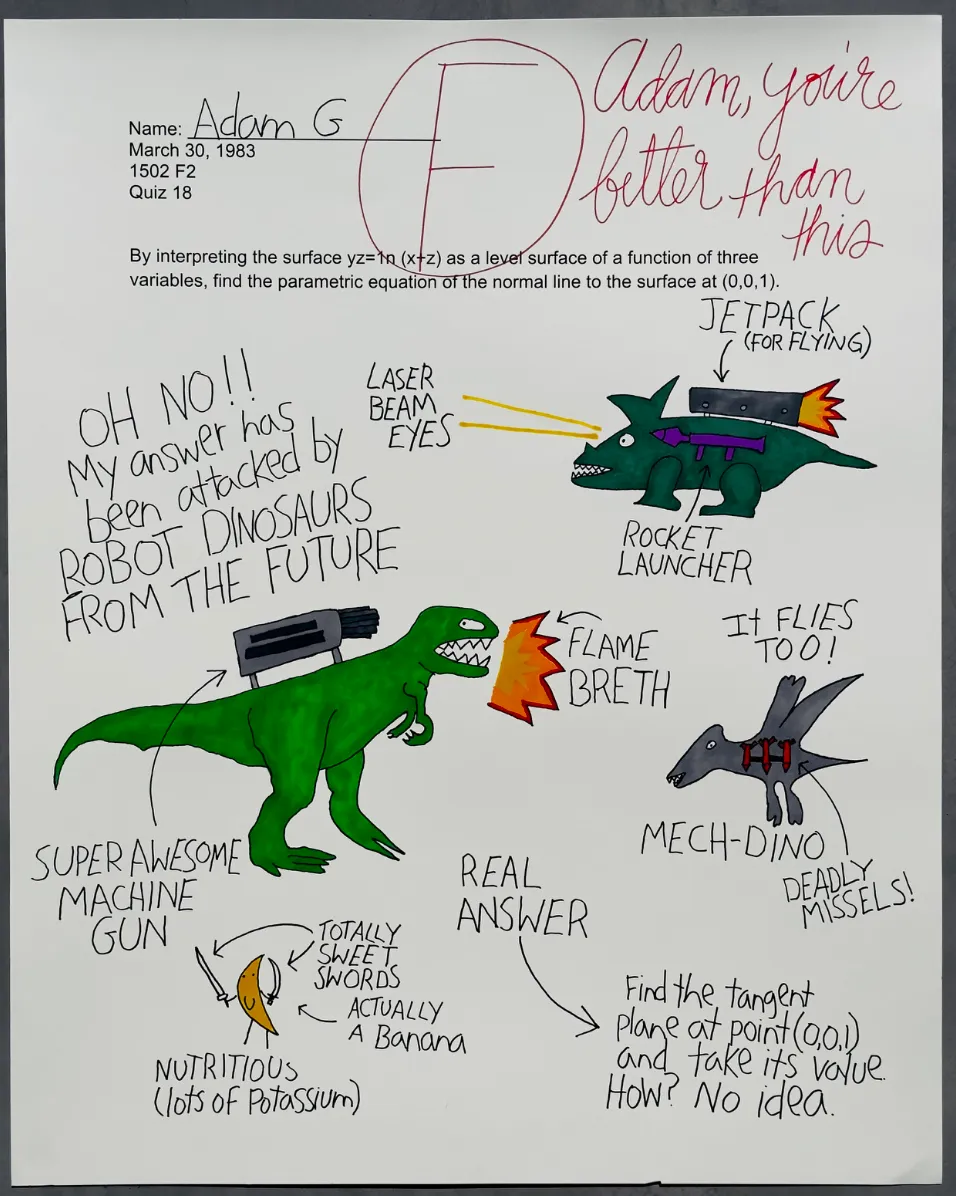 Name: Adam G
March 30, 1983
1502 F2
Quiz 18
F
Adam, you're
better than
this
By interpreting the surface yz=1n (x+z) as a level surface of a function of three
variables, find the parametric equation of the normal line to the surface at (0,0,1).
JETPACK
(FOR FLYING)
LASER
BEAM
EYES
OH NO!!
My answer has
been attacked by
ROBOT DINOSAURS
FROM THE FUTURE
ROCKET
LAUNCHER
FLAME
BRETH
It FLIES
TOO!
MECH-DINO
DEADLY
MISSELS!
SUPER AWESOME
MACHINE
GUN
REAL
ANSWER
TOTALLY
SWEET
SWORDS
ACTUALLY
A Banana
NUTRITIOUS
(lots of Potassium)
Find the tangent
plane at point (0,0,1)
and take its value.
How? No idea.